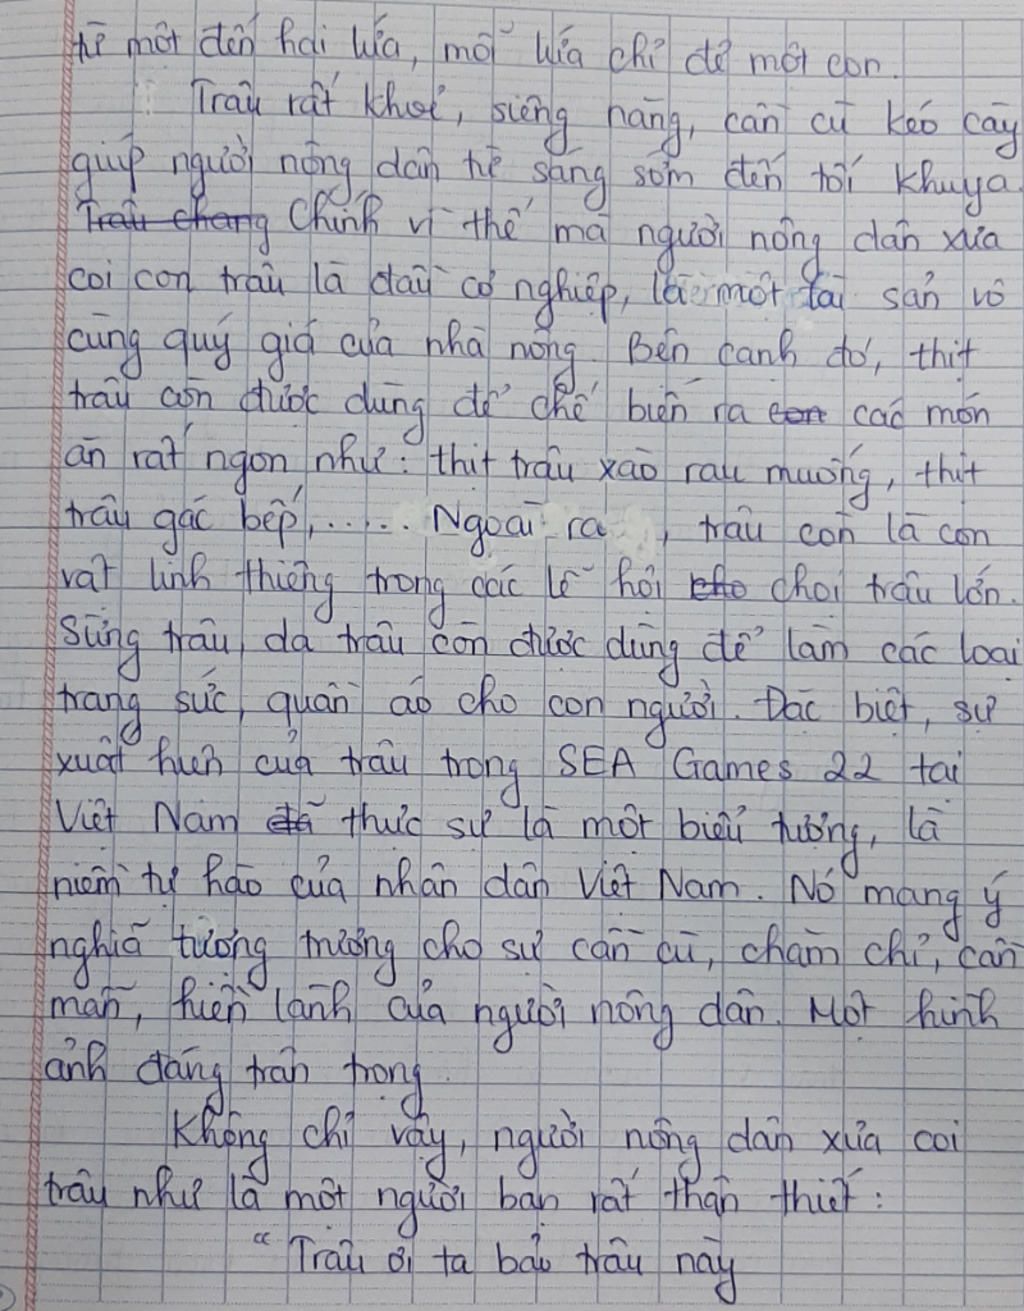 từ một đến hai lứa, mỗi lứa chỉ đẻ một con.
Trâu rất khoẻ, siêng năng, cần cù kéo cày
giúp người nông dân từ sáng sớm đến tối khuya.
Trâu chang Chính vì thế mà người nông dân xưa
coi con trâu là đầu cơ nghiệp, là một tài sản vô
cùng quý giá của nhà nông. Bên cạnh đó, thịt
trâu còn được dùng để chế biến ra con các món
ăn rất ngon như: thịt trâu xào rau muống, thịt
trâu gác bếp,..... Ngoài ra, trâu còn là con
vật linh thiêng trong các lễ hội cho chọi trâu lớn.
Sừng trâu, da trâu còn được dùng để làm các loại
trang sức, quần áo cho con người. Đặc biệt, sự
xuất hiện của trâu trong SEA Games 22 tại
Việt Nam đã thực sự là một biểu tượng, là
niềm tự hào của nhân dân Việt Nam. Nó mang ý
nghĩa tượng trưng cho sự cần cù, chăm chỉ, cần
mẫn, hiền lành của người nông dân. Một hình
ảnh đáng trân trọng.
Không chỉ vậy, người nông dân xưa coi
trâu như là một người bạn rất thân thiết:
"Trâu ơi ta bảo trâu này